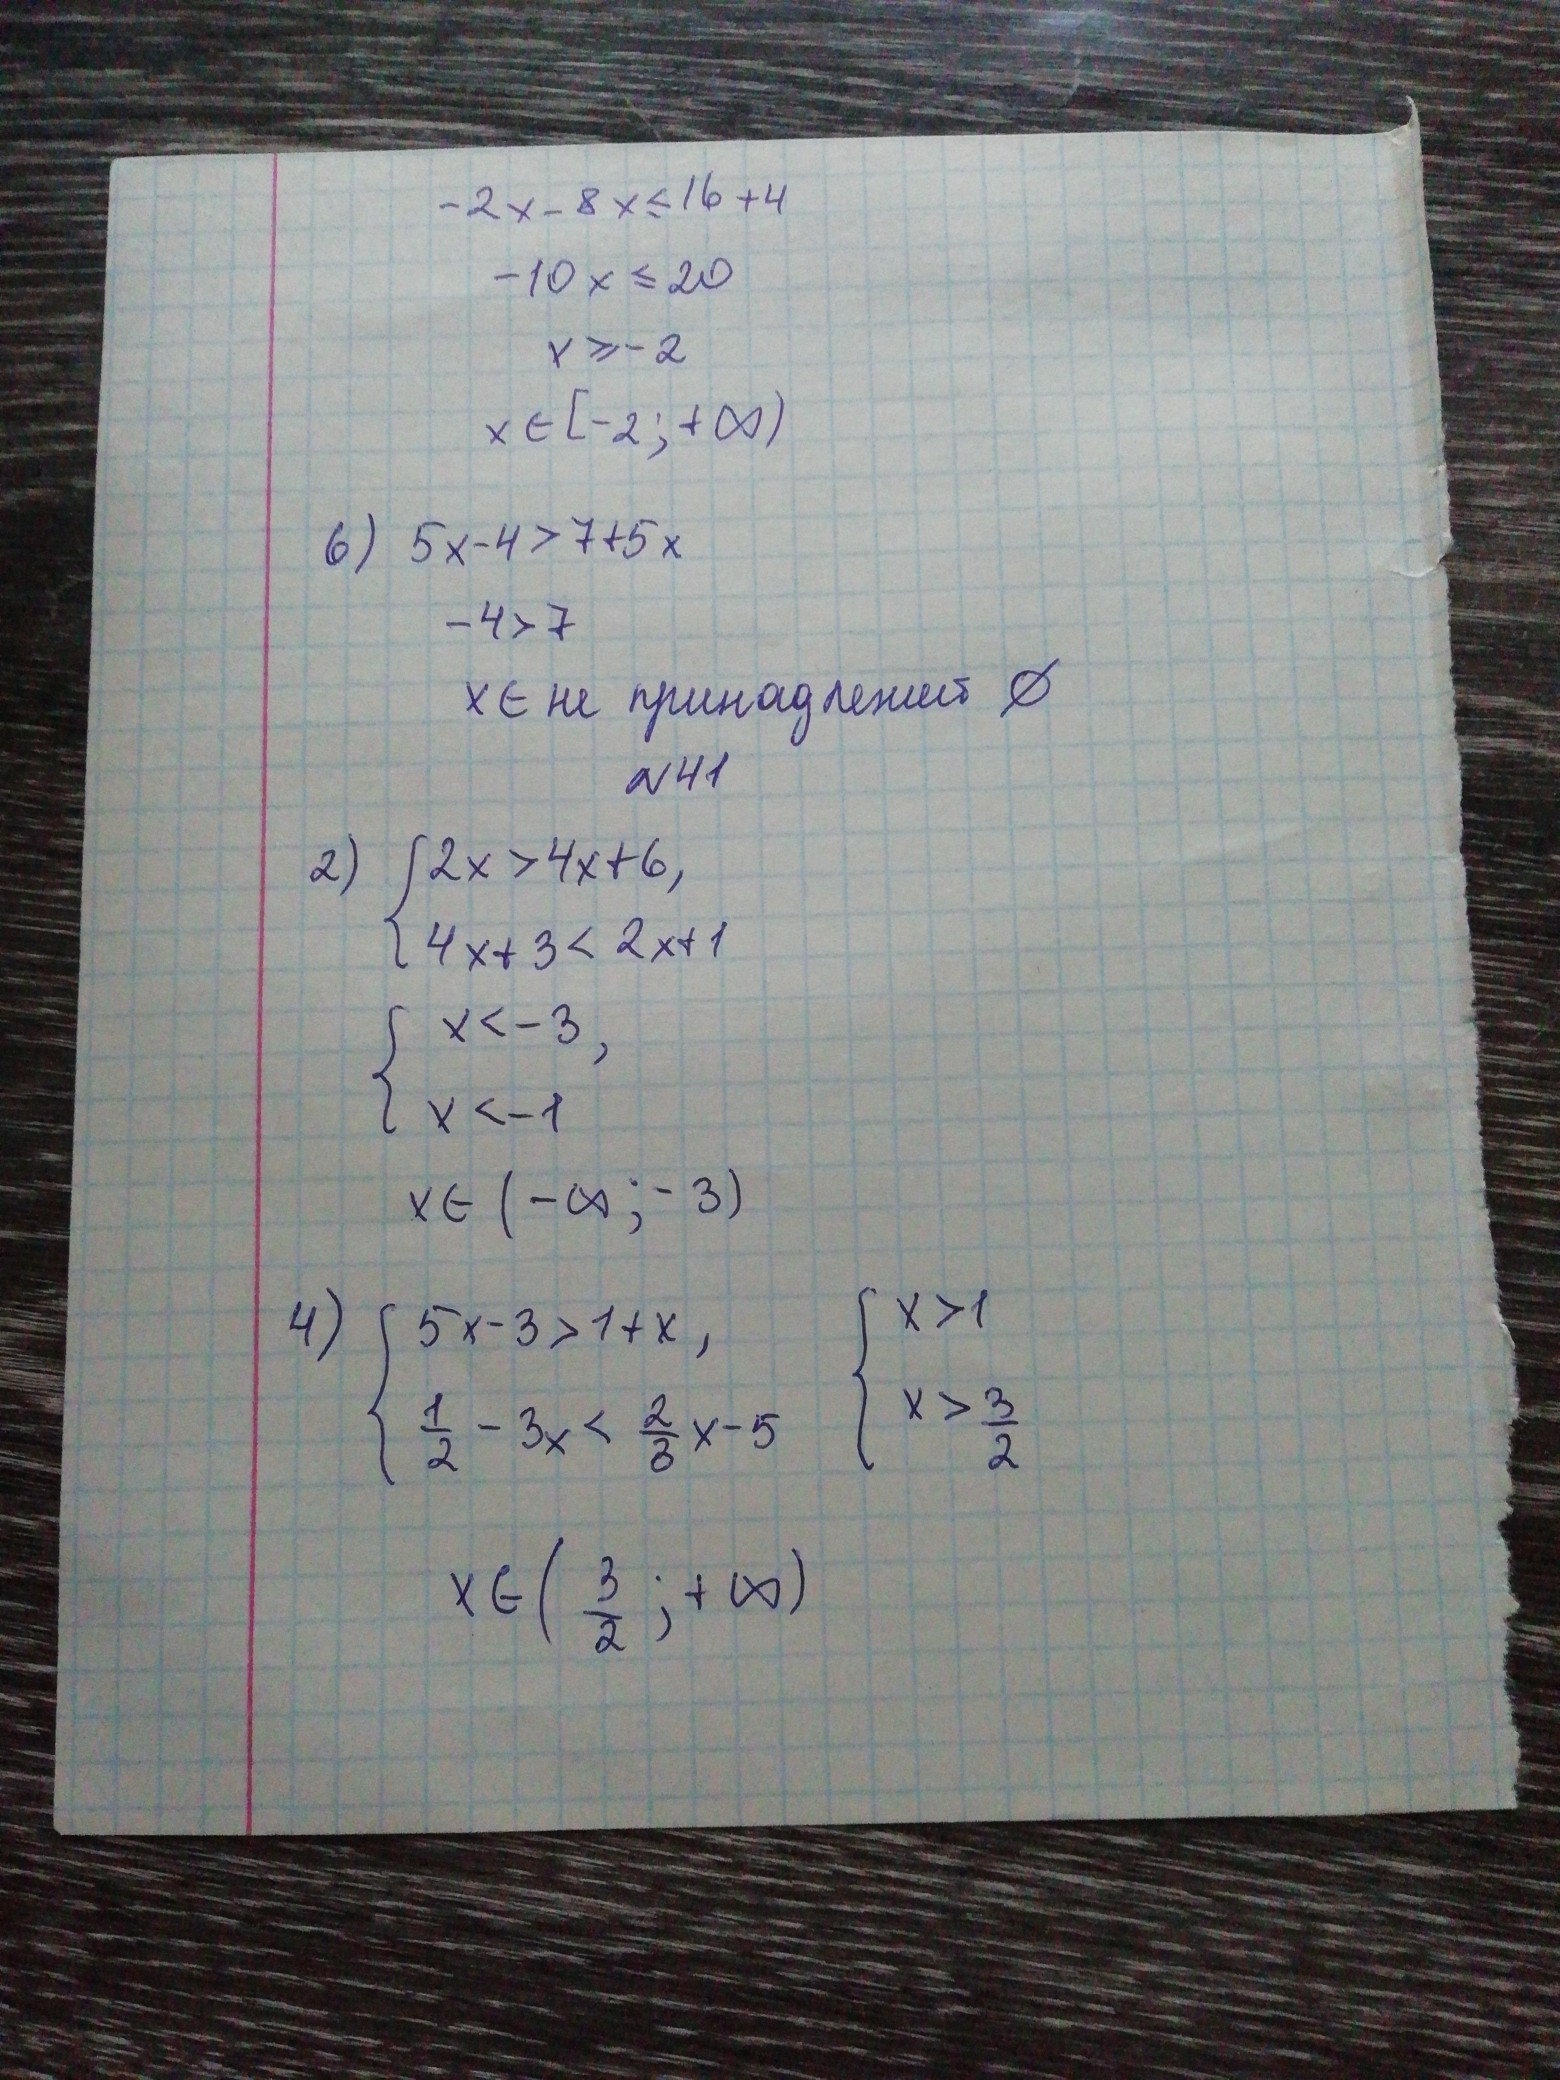 -2x-8x≤16+4
-10x≤20
x≥-2
x∈[-2;+∞)
6) 5x-4>7+5x
-4>7
x∈ не принадлежит ∅
№41
2) {2x>4x+6,
4x+3<2x+1
{x<-3,
x<-1
x∈(-∞;-3)
4) {5x-3>1+x,
1/2-3x<2/3x-5
{x>1
x>3/2
x∈(3/2;+∞)